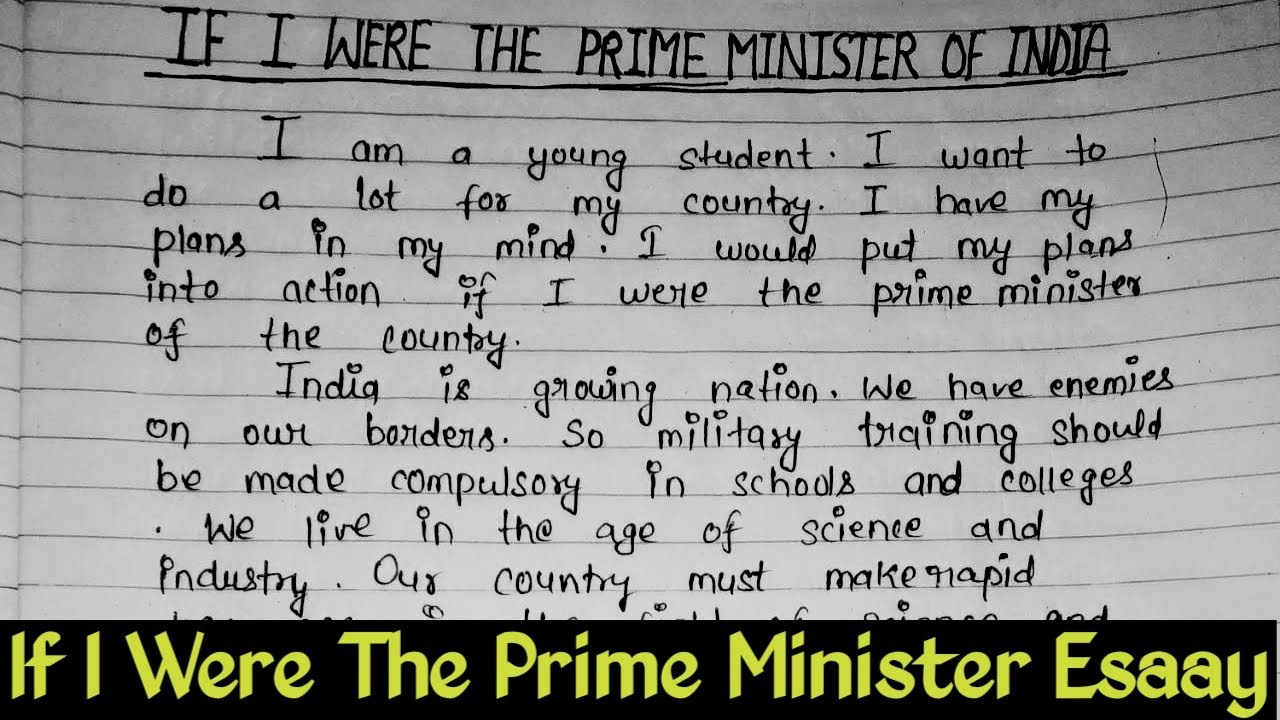 IF I WERE THE PRIME MINISTER OF INDIA
I am a young student. I want to
do a lot for my country. I have my
plans in my mind. I would put my plans
into action if I were the prime minister
of the country.
India is growing nation. We have enemies
on our borders. So military training should
be made compulsory in schools and colleges
. We live in the age of science and
industry. Our country must make rapid
science and
If I Were The Prime Minister Esaay